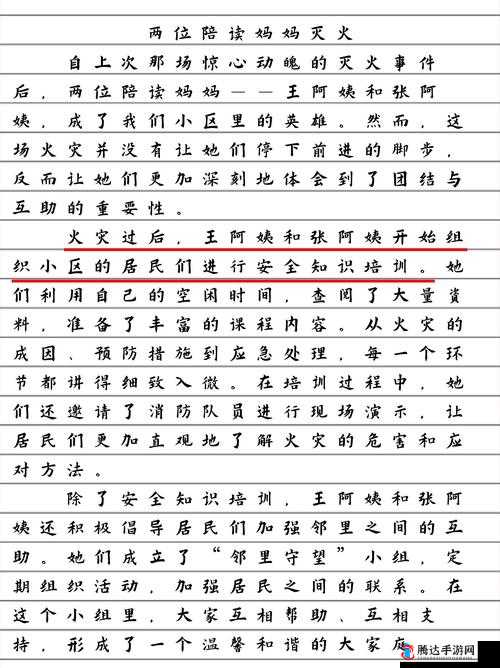 两位陪读妈妈灭火
自上次那场惊心动魄的灭火事件
后，两位陪读妈妈——王阿姨和张阿
姨，成了我们小区里的英雄。然而，这
场火灾并没有让她们停下前进的脚步，
反而让她们更加深刻地体会到了团结与
互助的重要性。
火灾过后，王阿姨和张阿姨开始组
织小区的居民们进行安全知识培训。她
们利用自己的空闲时间，查阅了大量资
料，准备了丰富的课程内容。从火灾的
成因、预防措施到应急处理，每一个环
节都讲得细致入微。在培训过程中，她
们还邀请了消防队员进行现场演示，让
居民们更加直观地了解火灾的危害和应
对方法。
除了安全知识培训，王阿姨和张阿
姨还积极倡导居民们加强邻里之间的互
助。她们成立了“邻里守望”小组，定
期组织活动，加强居民之间的联系。在
这个小组里，大家互相帮助、互相支
持，形成了一个温馨和谐的大家庭
腾达手游网